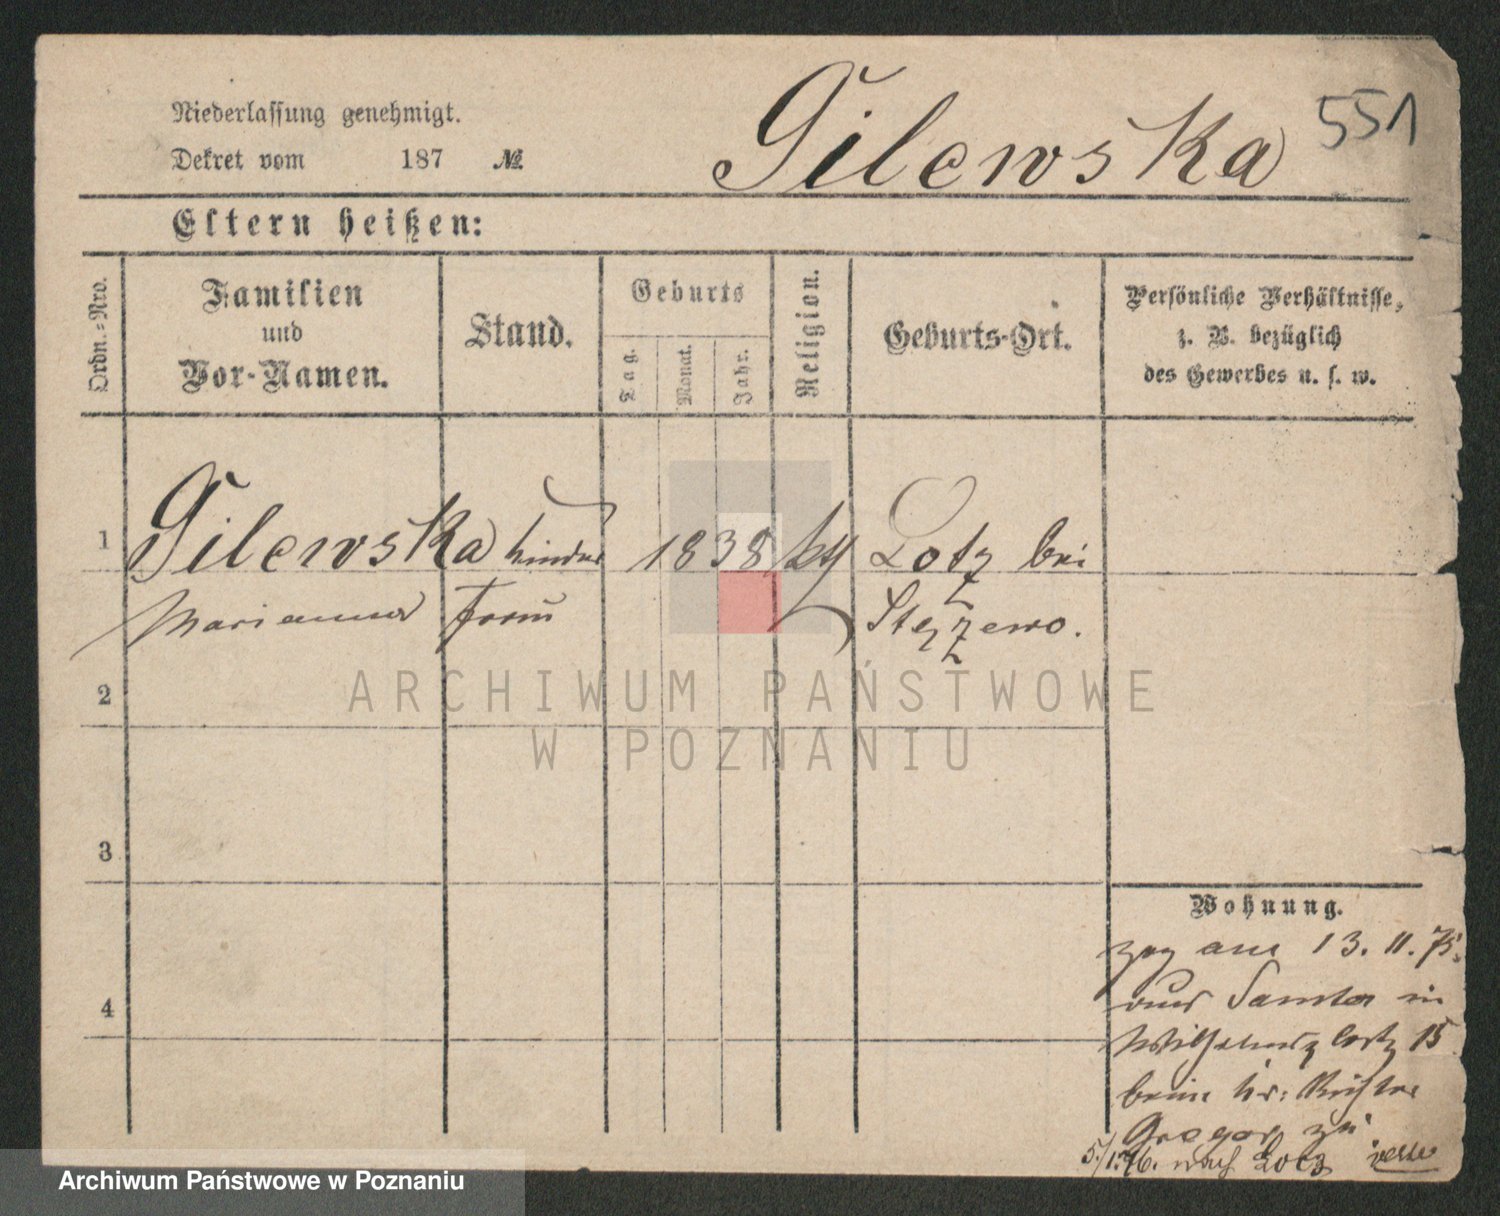 Niederlassung genehmigt.
Dekret vom 187 №
Gilewska 551
Eltern heißen:
Ordn.=Nro.
Familien
und
Vor-Namen.
Stand.
Geburts
Tag.
Monat.
Jahr.
Religion.
Geburts-Ort.
Persönliche Verhältnisse,
z. B. bezüglich
des Gewerbes u. s. w.
1 Gilewska Kinder 1838 kth Lotz bei
Marianna frau Stezzewo.
2
3
4
Wohnung.
zog am 13. 11. 75.
aus Samter in
Wilhelmsplatz 15
beim Hr:
Gregor zu
5/1.76. nach Lotz
ARCHIWUM PAŃSTWOWE
W POZNANIU
Archiwum Państwowe w Poznaniu